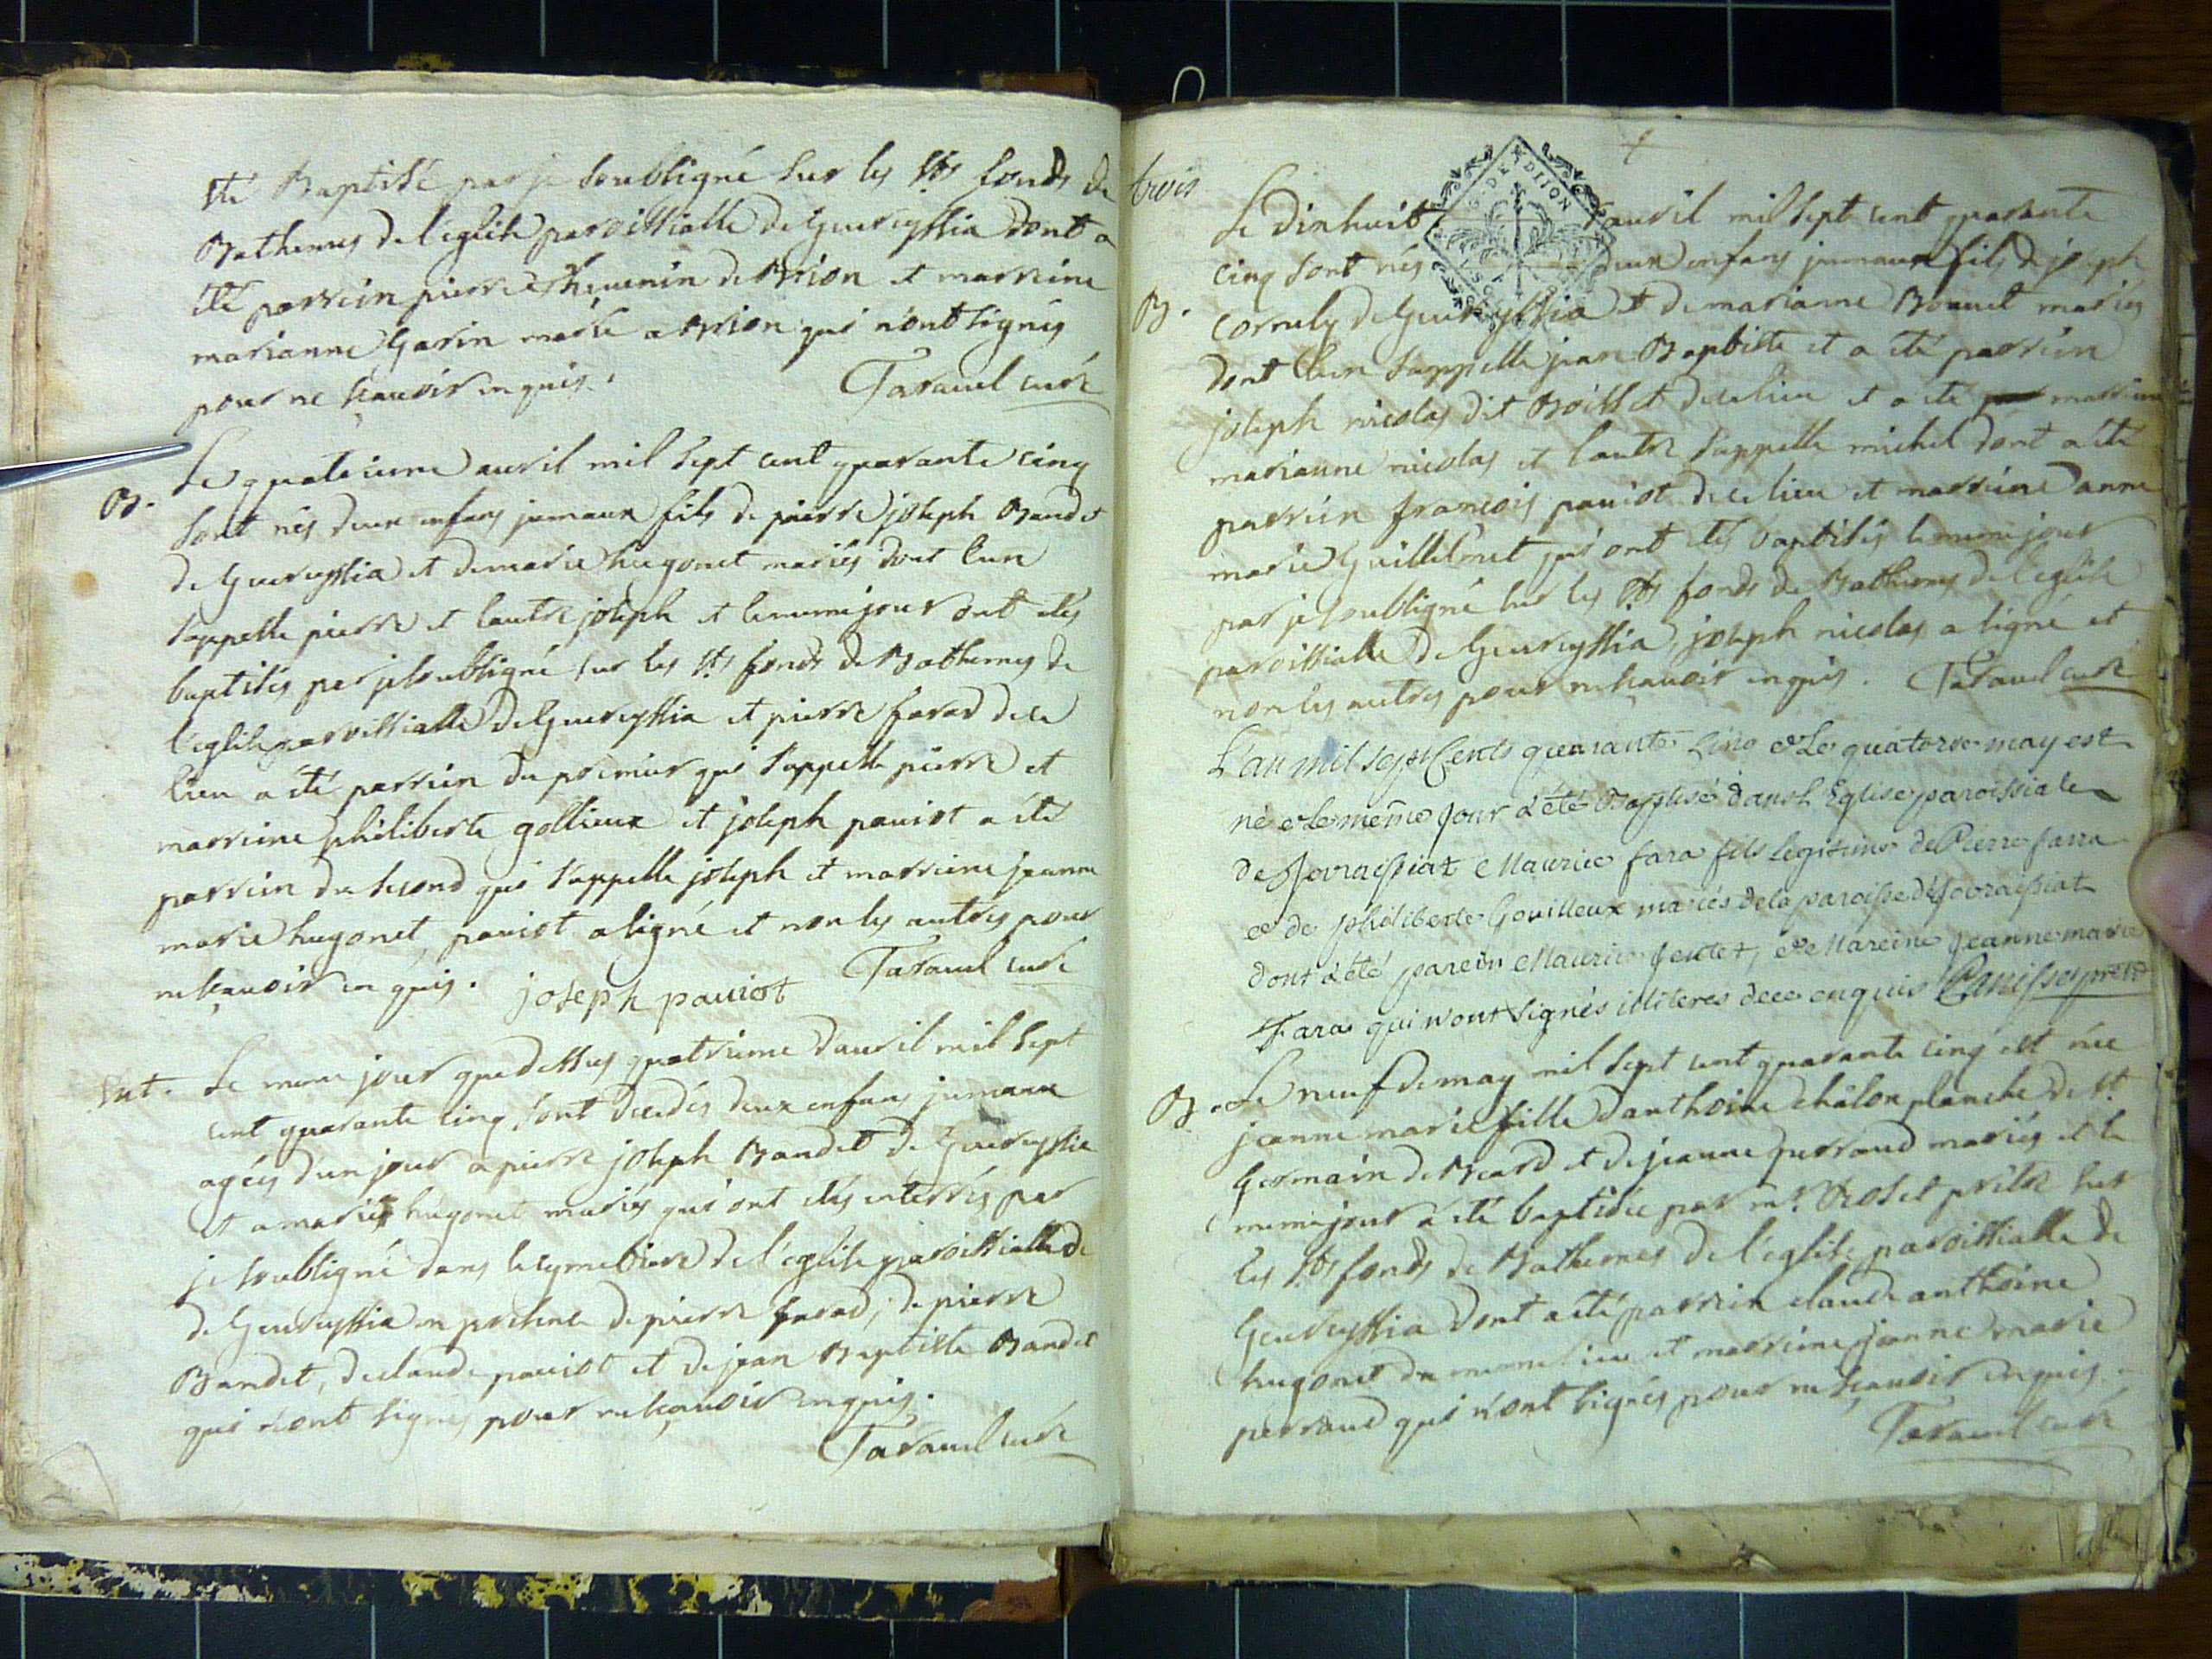 été Baptisé par je soubsigné sur les Sts fonds de
Bathemes de l'eglise paroissialle de Geureyssia dont a
été parrein pierre Thevenin de Brion et marreine
marianne Garin marié a Brion qui n'ont signés
pour ne sçauoir enquis.
Tarauel curé
B. Le quatrieme auril mil sept cent quarante cinq
sont nés deux enfans jumaux fils de pierre joseph Bandet
de Geureyssia et de marie hugonet mariés dont l'un
s'appelle pierre et l'autre joseph et le meme jour ont étés
baptisés par je soubsigné sur les Sts fonds de Bathemes de
l'eglise paroissialle de Geureyssia et pierre farad de ce
lieu a été parrein du premier qui s'appelle pierre et
marreine philiberte gollieux et joseph pauiot a été
parrein du second qui s'appelle joseph et marreine jeanne
marie hugonet, pauiot a signé et non les autres pour
ne sçauoir enquis. joseph pauiot Tarauel curé
Ent. Le meme jour que dessus quatrieme d'auril mil sept
cent quarante cinq sont decedés deux enfans jumaux
agées d'un jour a pierre joseph Bandet de Geureyssia
et a marie hugonet mariés qui ont étés enterrés par
je soubsigné dans le cymetiere de l'eglise paroissialle de
de Geureyssia en presence de pierre farad, de pierre
Bandet, de claude pauiot et de jean Baptiste Bandet
qui n'ont signés pour ne sçauoir enquis.
Tarauel curé
trois
G. DE DIJON
Le dixhuit auril mil sept cent quarante
cinq sont nés deux enfans jumaux fils de joseph
B. cornely de Geureyssia et de marianne Bouuet mariés
dont l'un s'appelle jean Baptiste et a été parrein
joseph nicolas dit Boisset de ce lieu et a été marreine
marianne nicolas et l'autre s'appelle michel dont a été
parrein francois pauiot de ce lieu et marreine anne
marie Guillelmet qui ont étés baptisés le meme jour
par je soubsigné sur les Sts fonds de Bathemes de l'eglise
paroissialle de Geureyssia, joseph nicolas a signé et
non les autres pour ne sçauoir enquis. Tarauel curé
L'an mil sept Cents quarante Cinq & Le quatorze may est
né & le même Jour a été Baptisé dans L'Eglise paroissiale
de Jevraissiat Maurice fara fils legitime de Pierre farra
& de philiberte Gouilleux mariés de la paroisse de Jevraissiat
dont a été parein Maurice Jentet, & Mareine Jeanne marie
Fara qui n'ont Signés illiteres de ce enquis
B. Le neuf de may mil sept cent quarante cinq est née
jeanne marie fille d'anthoine chalon planche de St.
Germain de Beard et de jeanne perraud mariés et le
meme jour a été baptisée par mr. Rosel prêtre sur
les Sts fonds de Bathemes de l'eglise paroissialle de
Geureyssia dont a été parrein claude anthoine
hugonet du meme lieu et marreine jeanne marie
perraud qui n'ont signés pour ne sçauoir enquis.
Tarauel curé